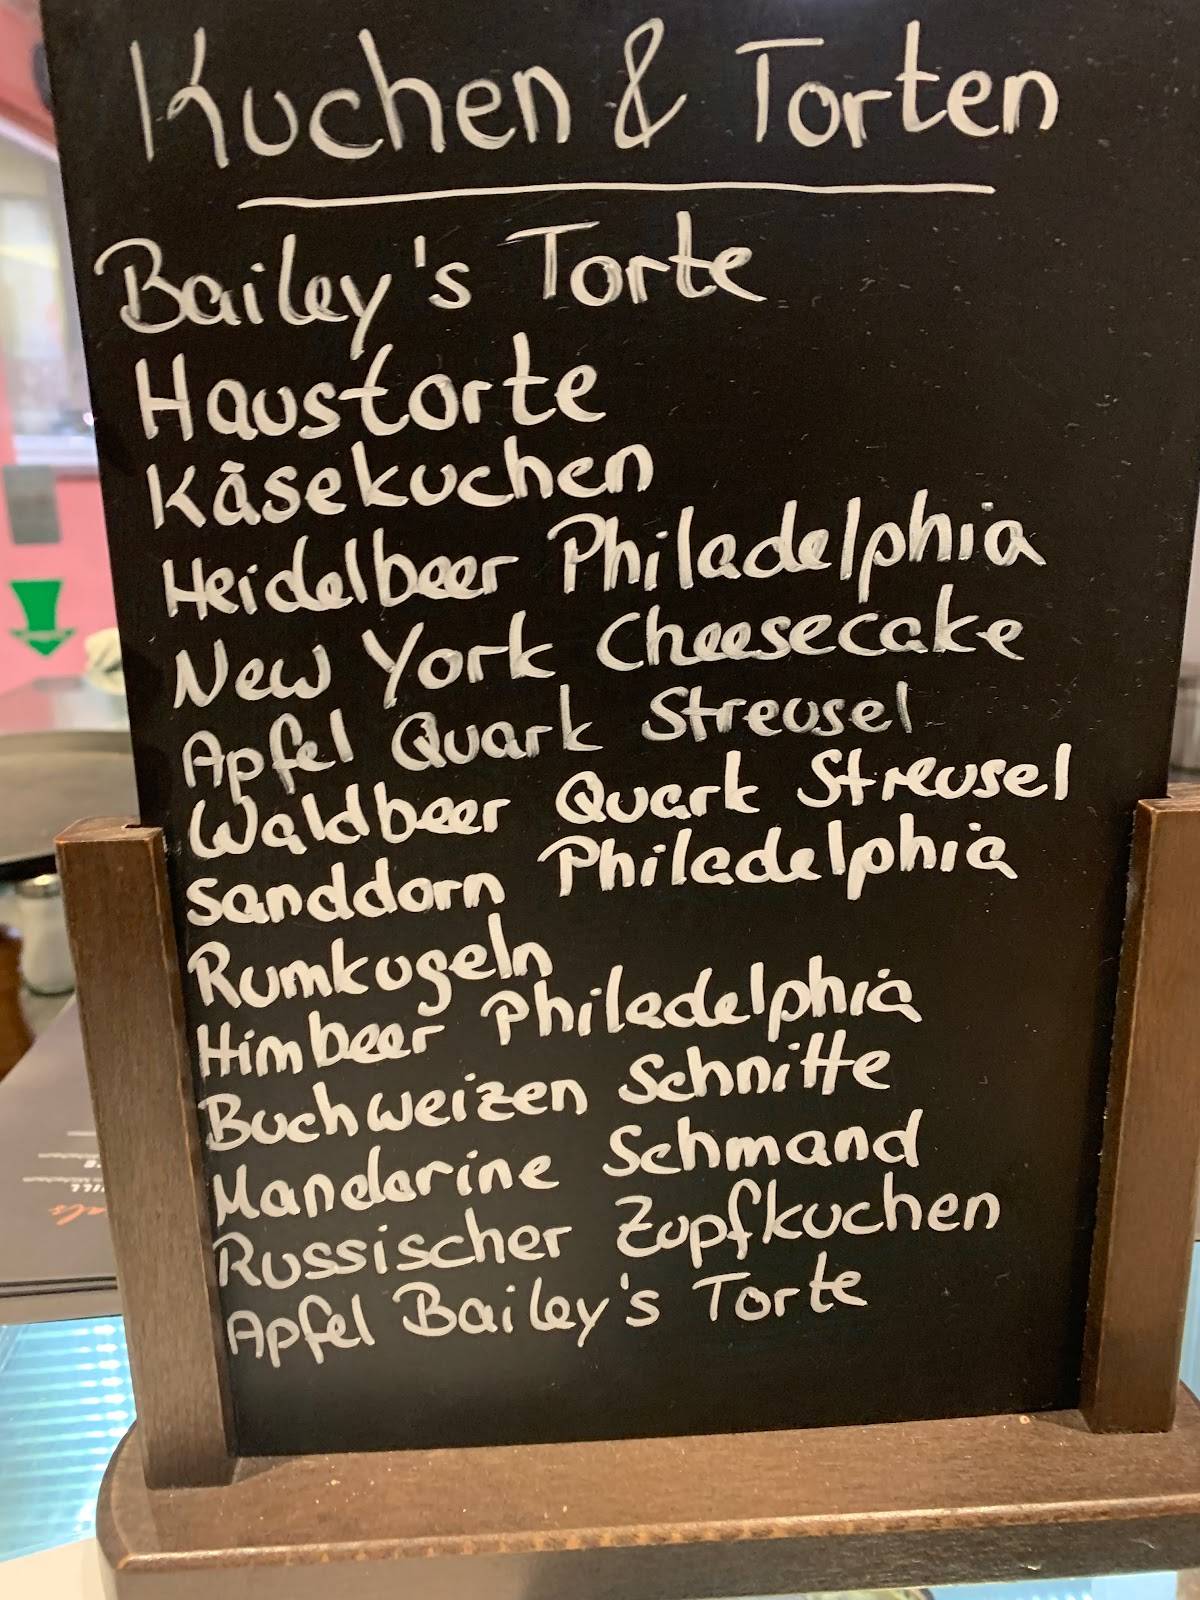 Kuchen & Torten
Bailey's Torte
Haustorte
Käsekuchen
Heidelbeer Philadelphia
New York Cheesecake
Apfel Quark Streusel
Waldbeer Quark Streusel
Sanddorn Philadelphia
Rumkugeln
Himbeer Philadelphia
Buchweizen Schnitte
Mandarine Schmand
Russischer Zupfkuchen
Apfel Bailey's Torte